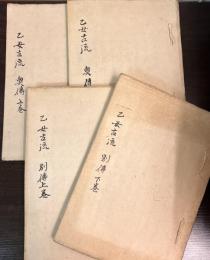 乙女古流 奥傳上巻
乙女古流 奥傳
乙女古流 別傳上巻
乙女古流 別傳下巻